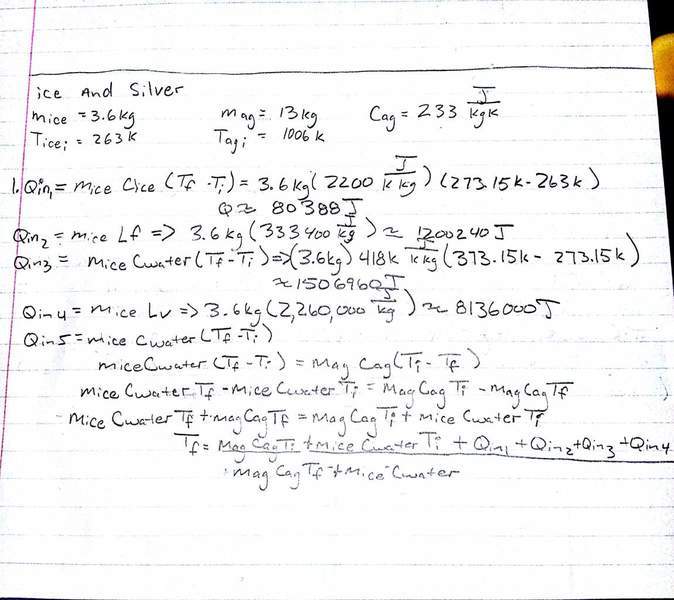 ice And Silver
mice = 3.6kg mag = 13kg Cag = 233 J/kgK
Ticei = 263K Tagi = 1006K
1. Qin1 = mice Cice (Tf - Ti) = 3.6kg (2200 J/K kg) (273.15K - 263K)
Q ≈ 80388 J
Qin2 = mice Lf => 3.6kg (333400 J/kg) ≈ 1200240 J
Qin3 = mice Cwater (Tf - Ti) => (3.6kg) 4186 J/K kg (373.15K - 273.15K)
≈ 1506960 J
Qin4 = mice Lv => 3.6kg (2,260,000 J/kg) ≈ 8136000 J
Qin5 = mice Cwater (Tf - Ti)
mice Cwater (Tf - Ti) = mag Cag (Ti - Tf)
mice Cwater Tf - mice Cwater Ti = mag Cag Ti - mag Cag Tf
mice Cwater Tf + mag Cag Tf = mag Cag Ti + mice Cwater Ti
Tf = mag Cag Ti + mice Cwater Ti + Qin1 + Qin2 + Qin3 + Qin4
mag Cag Tf + mice Cwater